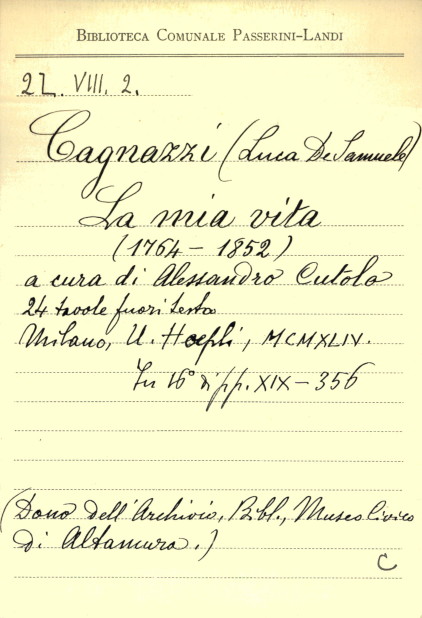 BIBLIOTECA COMUNALE PASSERINI-LANDI
2L. VIII. 2.
Cagnazzi (Luca De Samuele)
La mia vita
(1764 - 1852)
a cura di Alessandro Cutolo
24 tavole fuori testo
Milano, U. Hoepli, MCMXLIV.
In 16° di pp. XIX - 356
(Dono dell'Archivio, Bibl., Museo Civico
di Altamura.)
C